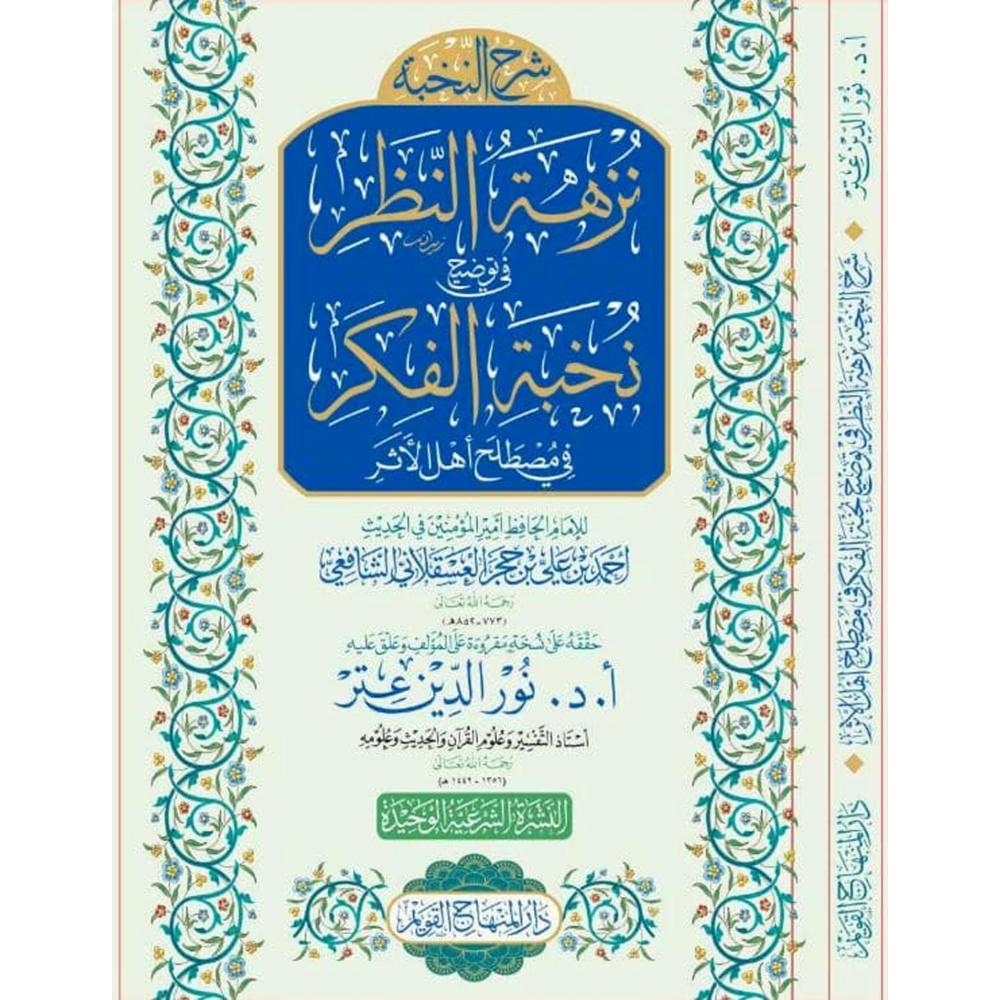 شرح النخبة
نُزهَةُ النَّظَرِ
في توضيح
نُخبَةِ الفِكَرِ
في مُصْطَلَحِ أهلِ الأَثَرِ
للإمام الحافظ أمير المؤمنين في الحديث
أحمد بن علي بن حجر العسقلاني الشافعي
رحمه الله تعالى
(٧٧٣ - ٨٥٢هـ)
حققه على نسخة مقروءة على المؤلف وعلق عليه
أ. د. نور الدين عتر
أستاذ التفسير وعلوم القرآن والحديث وعلومه
رحمه الله تعالى
(١٣٥٦ - ١٤٤٢ هـ)
النشرة الشرعية الوحيدة
دار المنهاج القويم
أ. د. نور الدين عتر
شرح النخبة نزهة النظر في توضيح نخبة الفكر في مصطلح أهل الأثر
دار المنهاج القويم